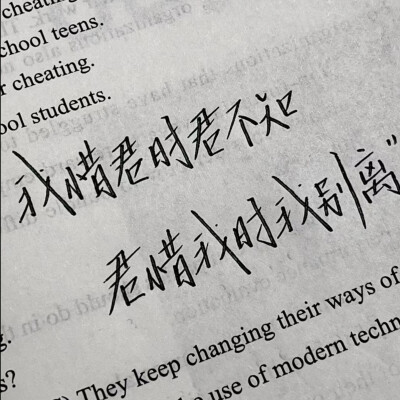 cheating
chool teens.
r cheating.
ool students.
我惜君时君不知
君惜我时我别离"
g.
s?
They keep changing their ways of
use of modern techn